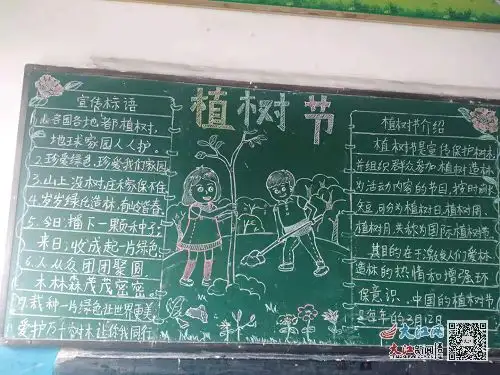 植树节
宣传标语
1.各国各地都植树,
地球家园人人护。
2.珍爱绿色,珍爱我们家园
3.山上没树,庄稼保不住
4.岁岁绿化造林,年年护春
5.今日播下一颗种子
来日收成起一片绿色
6.人人众众团团聚圆
木林森茂茂密密
7.栽种一片绿色让世界更美
爱护万千树木让你我同行
植树节介绍
植树节是宣传保护树木
并组织群众参加植树造林
为活动内容的节日,按时间
矢豆可分为植树日、植树周、
植树月,共称为国际植树节
其目的在于激发人们爱林
造林的热情和增强环
保意识、中国的植树节
是每年的3月12日
大江网
大江新闻